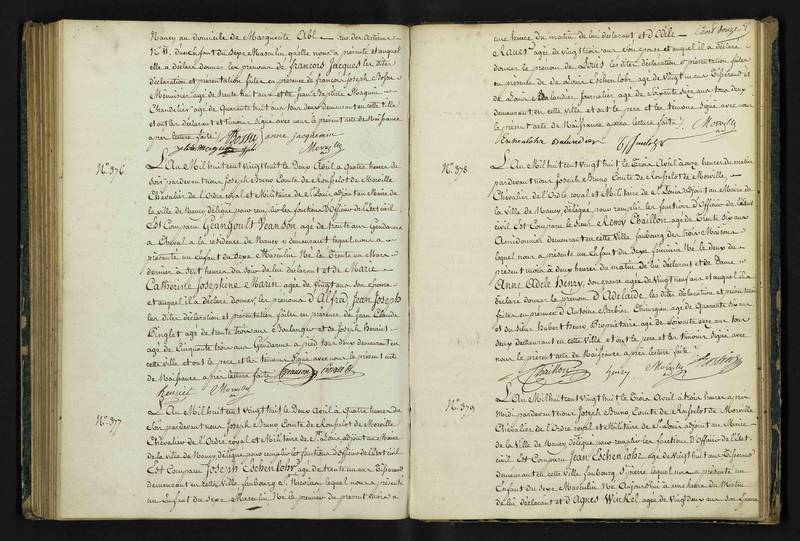 Nancy au domicile de Marguerite Abl rue des Artisans
N.° 11. du Enfant du Sexe Masculin qu'elle nous a présenté et auquel
elle a déclaré donner les prénoms de François Jacques les dites
déclaration et présentation faites en présence de françois joseph
Menuisier agé de trente huit ans et de Jean Baptiste Maguin
Chandelier agé de Quarante huit ans tous deux demeurant en cette ville
et ont les déclarant et témoins signé avec nous le présent acte de Naissance
après lecture faite
Morville
N.° 376
L'An Mil huit cent Vingt huit le Deux Avril à Quatre heures du
Soir pardevant nous Joseph Bruno Comte de Rousselot de Morville
Chevalier de l'Ordre royal et Militaire de S.t Louis adjoint au Maire de
la ville de Nancy délégué pour remplir les fonctions d'Officier de l'état civil.
Est Comparu Geangoult Jeanson, agé de trente ans Gendarme
à Cheval à la résidence de Nancy y demeurant lequel nous a
présenté un Enfant du Sexe Masculin Né le Trente un Mars
dernier à Sept heures du Soir de lui déclarant et de Marie
Catherine Josephine Marin agée de Vingt ans son épouse
et auquel il a déclaré donner les prénoms d'Alfred Jean Joseph
les dites déclaration et présentation faites en présence de Jean Claude
Pinglet agé de trente trois ans Boulanger et de Joseph
agé de Cinquante trois ans Gendarme à pied tous deux demeurant en
cette ville et ont le père et les témoins signé avec nous le présent acte
de Naissance après lecture faite
Morville
N.° 377
L'An Mil huit cent Vingt huit, le Deux Avril à Quatre heures du
Soir pardevant nous Joseph Bruno Comte de Rousselot de Morville
Chevalier de l'Ordre royal et Militaire de S.t Louis adjoint au Maire
de la ville de Nancy délégué pour remplir les fonctions d'Officier de l'état civil
Est Comparu Joseph Eschenlohr agé de trente un ans Tisserand
demeurant en cette Ville, faubourg S.t Nicolas lequel nous a présenté
un Enfant du Sexe Masculin Né le premier du présent Mois à
Cent douze
une heure du matin de lui déclarant et d'Adèle
agée de vingt trois ans son épouse et auquel il a déclaré
donner le prénom de Louis les dites déclaration et présentation faites
en présence de Eschenlohr agé de Vingt neuf ans Tisserand et
de Louis journalier agé de Soixante six ans tous deux
demeurant en cette ville et ont le père et les témoins signé avec nous
le présent acte de Naissance après lecture faite
Morville
N.° 378
L'An Mil huit cent Vingt huit le Trois Avril à onze heures du matin
pardevant nous Joseph Bruno Comte de Rousselot de Morville,
Chevalier de l'Ordre royal et Militaire de S.t Louis adjoint au Maire de
la Ville de Nancy délégué pour remplir les fonctions d'Officier de l'état
civil Est Comparu le Sieur Remy Chaillon agé de Trente six ans
Amidonnier demeurant en cette Ville faubourg des trois Maisons
lequel nous a présenté un Enfant du Sexe féminin Né le deux du
présent mois à deux heures du matin de lui déclarant et de Dame
Anne Adèle Henry, son épouse agée de Vingt neuf ans et auquel il a
déclaré donner le prénom d'Adelaïde les dites déclaration et présentation
faites en présence d'Antoine Barbier Chirurgien agé de Quarante six ans
et du Sieur Hubert Henry Propriétaire agé de Soixante six ans tous
deux demeurant en cette Ville et ont le père et les témoins signé avec
nous le présent acte de Naissance après lecture faite
Chaillon Henry Morville
N.° 379
L'An Mil huit cent Vingt huit le Trois Avril à trois heures après
midi pardevant nous Joseph Bruno Comte de Rousselot de Morville
Chevalier de l'Ordre royal et Militaire de S.t Louis adjoint au Maire
de la Ville de Nancy délégué pour remplir les fonctions d'Officier de l'état
civil Est Comparu Jean Eschenlohr agé de Vingt huit ans Tisserand
demeurant en cette Ville faubourg S.t pierre lequel nous a présenté un
Enfant du Sexe Masculin Né Aujourd'hui à une heure du Matin
de lui déclarant et d'Agnès Winkel agée de Vingt deux ans son épouse